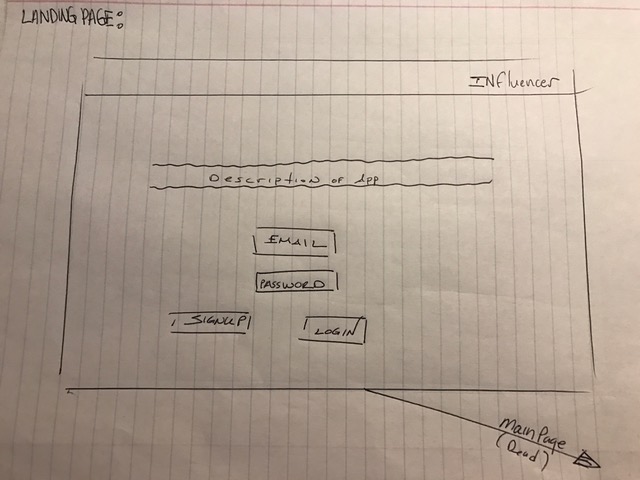 LANDING PAGE:
INfluencer
Description of App
EMAIL
PASSWORD
SIGNUP
LOGIN
Main Page
(Read)